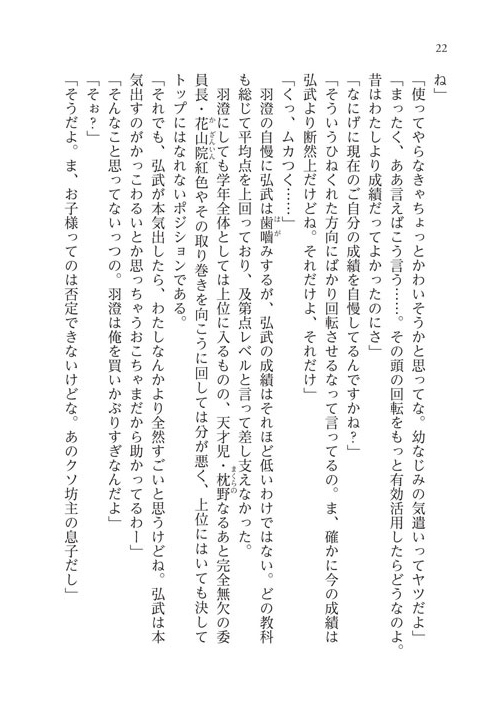 22
ね」
「使ってやらなきゃちょっとかわいそうかと思ってな。幼なじみの気遣いってヤツだよ」
「まったく、ああ言えばこう言う……。その頭の回転をもっと有効活用したらどうなのよ。
昔はわたしより成績だってよかったのにさ」
「なにげに現在のご自分の成績を自慢してるんですかね?」
「そういうひねくれた方向にばかり回転させるなって言ってるの。ま、確かに今の成績は
弘武より断然上だけどね。それだけよ、それだけ」
「くっ、ムカつく……」
羽澄の自慢に弘武は歯嚙みするが、弘武の成績はそれほど低いわけではない。どの教科
も総じて平均点を上回っており、及第点レベルと言って差し支えなかった。
羽澄にしても学年全体としては上位に入るものの、天才児・枕野なるあと完全無欠の委
員長・花山院紅色やその取り巻きを向こうに回しては分が悪く、上位にはいても決して
トップにはなれないポジションである。
「それでも、弘武が本気出したら、わたしなんかより全然すごいと思うけどね。弘武は本
気出すのがかっこわるいとか思っちゃうおこちゃまだから助かってるわー」
「そんなこと思ってないっつの。羽澄は俺を買いかぶりすぎなんだよ」
「そぉ?」
「そうだよ。ま、お子様ってのは否定できないけどな。あのクソ坊主の息子だし」